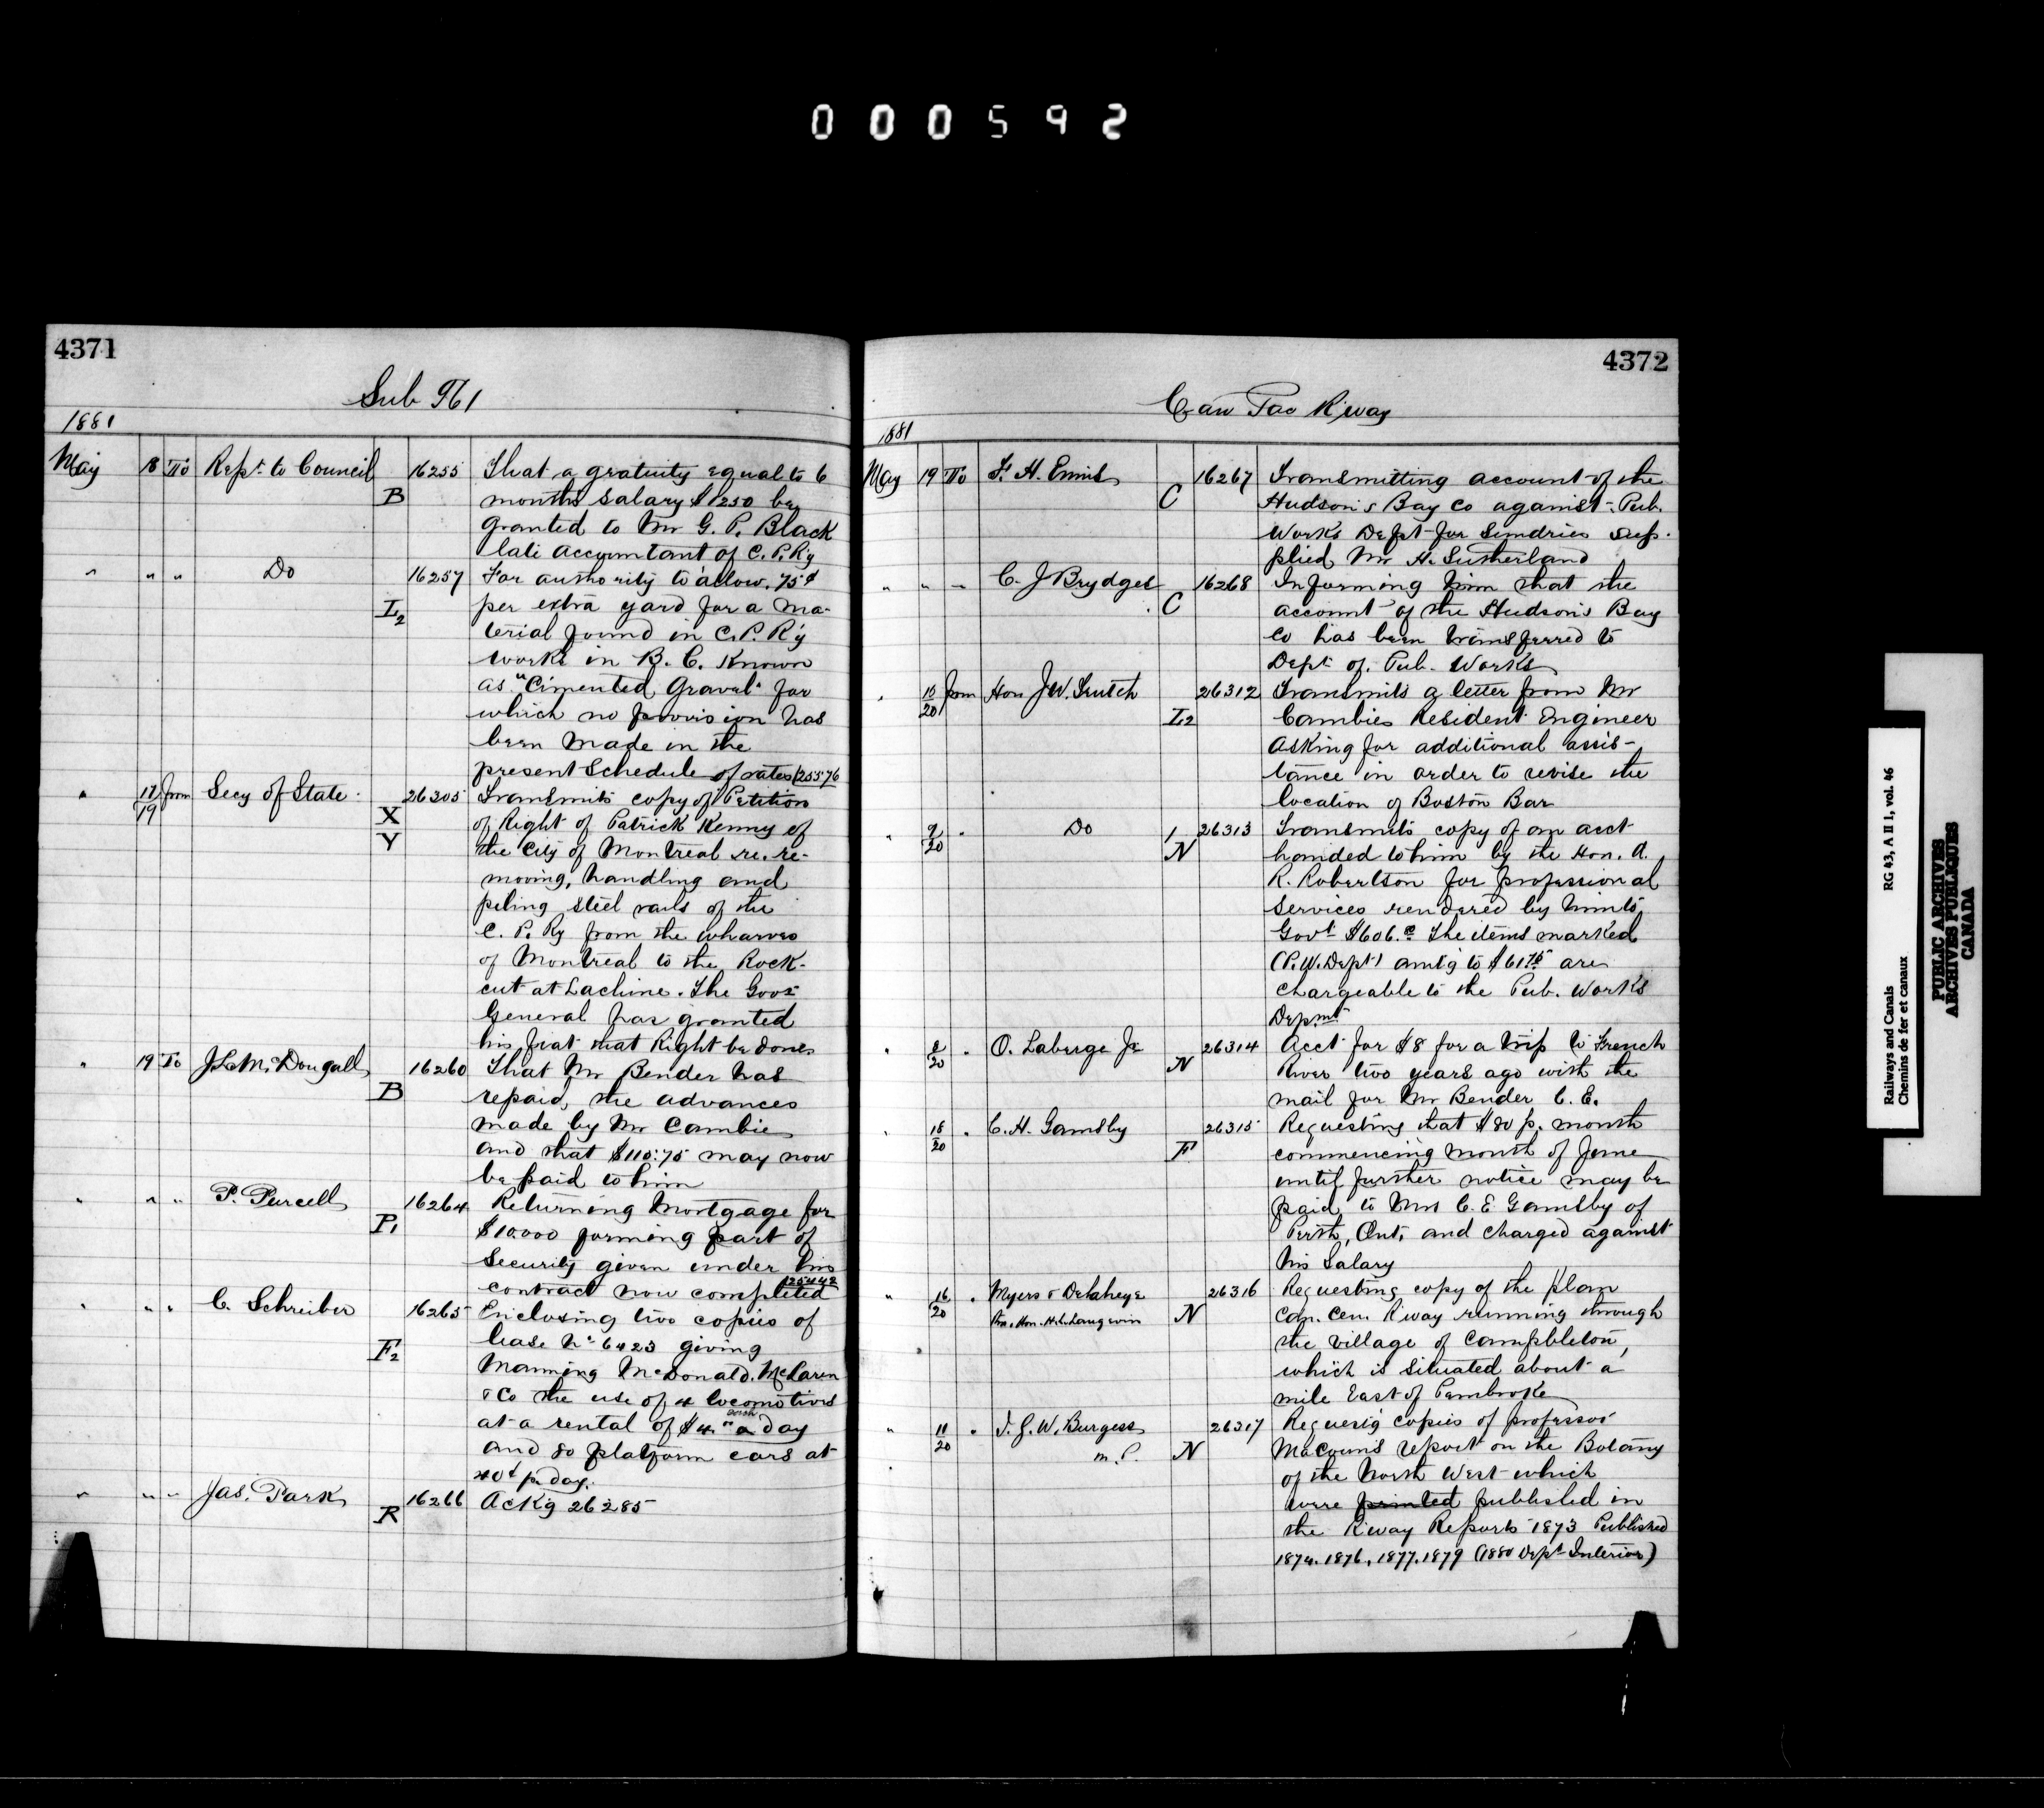 000592
4371
Sub 961
1881
May 18 To Rept. to Council B 16255 That a gratuity equal to 6
months salary $1250 be
granted to Mr G. P. Black
late accountant of C. P. Ry
" " " Do L2 16257 For authority to allow 75¢
per extra yard for a ma-
terial found in C. P. R'y
works in B. C. Known
as "Cimented Gravel" for
which no provision has
been made in the
present Schedule of rates (25576
" 17/19 from Secy of State X Y 26305 Transmits copy of Petition
of Right of Patrick Kenny of
the City of Montreal re. re-
moving, handling and
pileing steel rails of the
C. P. Ry from the wharves
of Montreal to the Rock-
cut at Lachine. The Govr
General has granted
his fiat that Right be done
" 19 To J L McDougall B 16260 That Mr Bender has
repaid, the advances
made by Mr Cambie
and that $110.75 may now
be paid to him
" " " P. Purcell P1 16264 Returning Mortgage for
$10.000 forming part of
Security given under his
contract now completed 25442
" " " C. Schreiber F2 16265 Enclosing two copies of
lease No 6423 giving
Manning McDonald. McLaren
& Co the use of 4 locomotives
at a rental of $4.00 each a day
and 80 platform cars at
40¢ pr day.
" " " Jas. Park R 16266 Ackg 26285
4372
Can Pac R'way
1881
May 19 To F. H. Ennis C 16267 Transmitting account of the
Hudson's Bay Co against Pub.
Works Dept for Sundries sup-
plied Mr H. Sutherland
" " " C. J Brydges C 16268 Informing him that the
account of the Hudson's Bay
Co has been transferred to
Dept of. Pub. Works
" /20 from Hon J W. Trutch L2 26312 Transmits a letter from Mr
Cambie Resident Engineer
Asking for additional assis-
tance in order to revise the
location of Boston Bar
" 9/20 " Do 1 N 26313 Transmits copy of an acct
handed to him by the Hon. A.
R. Robertson for professional
Services rendered by him to
Govt $606. The items marked
(P. W. Dept) amtg to $61.75 are
chargeable to the Pub. Works
Depmt
" /20 " O. Laberge Jr N 26314 Acct for $8 for a trip to French
River two years ago with the
mail for Mr Bender C. E.
" 18/20 " C. H. Gamsby F 26315 Requesting that $80 p. month
commencing month of June
until further notice may be
paid to Mrs C. E Gamsby of
Perth, Ont, and charged against
his Salary
" 16/20 " Myers & Delahaye N 26316 Requesting copy of the plan
Thro. Hon. H. L. Langevin Can. Cen. R'way running through
the village of Campbleton,
which is situated about a
mile East of Pembroke
" 11/20 " T. G. W. Burgess N 26317 Requesig copies of professor
m. P. Macoun's report on the Botany
of the North West which
were printed published in
the R'way Reports 1873 Published
1874. 1876, 1877. 1879 (1880 Dept Interior)
Railways and Canals RG 43, A II 1, vol. 46
Chemins de fer et canaux
PUBLIC ARCHIVES
ARCHIVES PUBLIQUES
CANADA